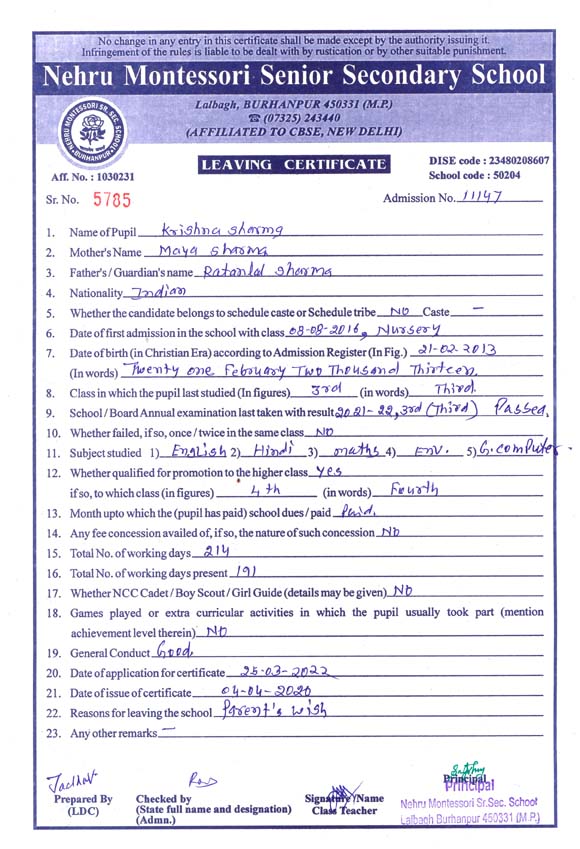 No change in any entry in this certificate shall be made except by the authority issuing it.
Infringement of the rules is liable to be dealt with by rustication or by other suitable punishment.
Nehru Montessori Senior Secondary School
Lalbagh, BURHANPUR 450331 (M.P.)
☎ (07325) 243440
(AFFILIATED TO CBSE, NEW DELHI)
NEHRU MONTESSORI SR. SEC. SCHOOL
BURHANPUR
LEAVING CERTIFICATE
DISE code : 23480208607
Aff. No. : 1030231 School code : 50204
Sr. No. 5785 Admission No. 11147
1. Name of Pupil Krishna Sharma
2. Mother's Name Maya Sharma
3. Father's / Guardian's name Ratanlal Sharma
4. Nationality Indian
5. Whether the candidate belongs to schedule caste or Schedule tribe NO Caste —
6. Date of first admission in the school with class 08-08-2016, Nursery
7. Date of birth (in Christian Era) according to Admission Register (In Fig.) 21-02-2013
(In words) Twenty one February Two Thousand Thirteen.
8. Class in which the pupil last studied (In figures) 3rd (in words) Third.
9. School / Board Annual examination last taken with result 2021-22, 3rd (Third) Passed.
10. Whether failed, if so, once / twice in the same class NO
11. Subject studied 1) English 2) Hindi 3) maths 4) ENV. 5) G.computer
12. Whether qualified for promotion to the higher class Yes
if so, to which class (in figures) 4th (in words) Fourth
13. Month upto which the (pupil has paid) school dues / paid Paid.
14. Any fee concession availed of, if so, the nature of such concession NO
15. Total No. of working days 214
16. Total No. of working days present 191
17. Whether NCC Cadet / Boy Scout / Girl Guide (details may be given) NO
18. Games played or extra curricular activities in which the pupil usually took part (mention
achievement level therein) NO
19. General Conduct Good.
20. Date of application for certificate 25-03-2022
21. Date of issue of certificate 04-04-2020
22. Reasons for leaving the school Parent's wish
23. Any other remarks —
Prepared By
(LDC)
Checked by
(State full name and designation)
(Admn.)
Signature / Name
Class Teacher
Principal
Principal
Nehru Montessori Sr.Sec. School
Lalbagh Burhanpur 450331 (M.P.)